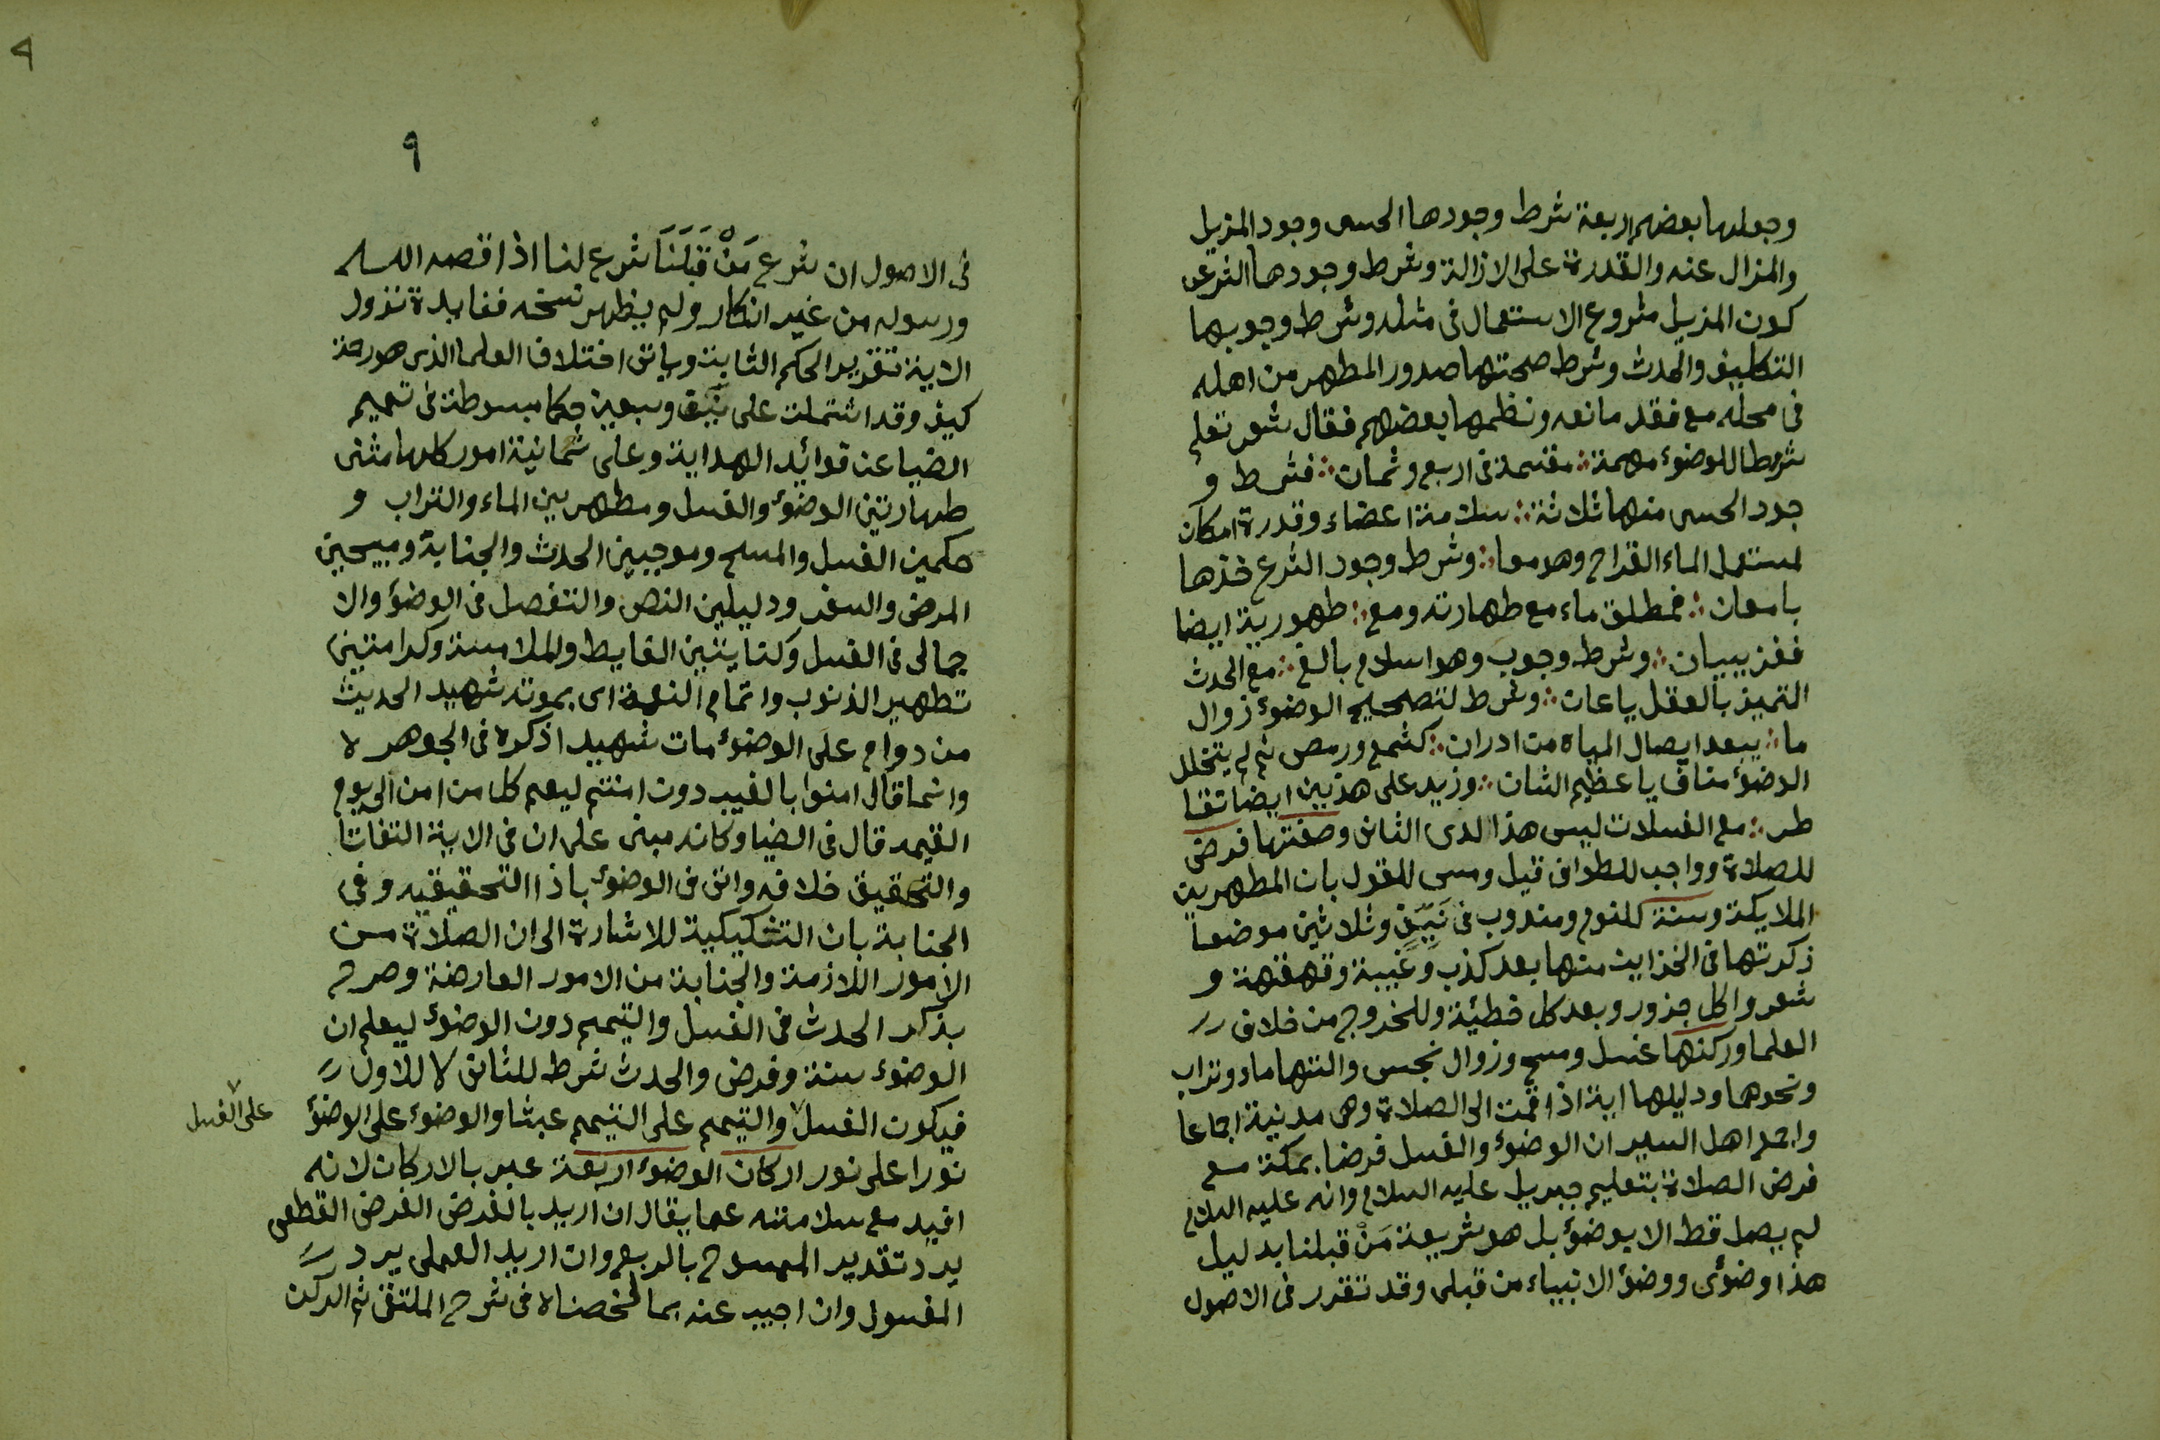 وجعلها بعضهم اربعة شرط وجودها الحسى وجود المزيل
والمزال عنه والقدرة على الازالة وشرط وجودها الشرعى
كون المزيل مشروع الاستعمال فى مثله وشرط وجوبها
التكليف والحدث وشرط صحتها صدور المطهر من اهله
فى محله مع فقد مانعه ونظمها بعضهم فقال شعر تعلم
شرطا للوضوء مهمة ؞ مقسمة فى اربع وثمان ؞ فشرط و
جود الحسى منها ثلاثة ؞ سلامة اعضاء وقدرة امكان
لمستعمل الماء القراح وهو معا ؞ وشرط وجود الشرع خذها
بامعان ؞ فمطلق ماء مع طهارته ومع ؞ طهورية ايضا
ففز ببيان ؞ وشرط وجوب وهو اسلام بالغ ؞ مع الحدث
التميز بالعقل يا عان ؞ وشرط لتصحيح الوضوء زوال
ما ؞ يبعد ايصال المياه من ادران ؞ كشمع ورمص ثم لم يتخلل
الوضوء مناف يا عظيم الشان ؞ وزيد على هذين ايضا تقا
طر ؞ مع الغسلات ليس هذا لدى الثان وصفتها فرض
للصلاة وواجب للطواف قيل ومس للقول بان المطهرين
الملايكة وسنة للنوم ومندوب فى نَيّفٍ وثلاثين موضعا
ذكرتها فى الخزاين منها بعد كذب وغيبة وقهقهة و
شعر واكل جزور وبعد كل خطيئة وللخروج من خلاف
العلما وركنها غسل ومسح وزوال نجس والتها ماء وتراب
ونحوها ودليلها اية اذا قمت الى الصلاة وهى مدنية اجماعا
واجمع اهل السير ان الوضوء والغسل فرضا بمكة مع
فرض الصلاة بتعليم جبريل عليه السلام وانه عليه السلام
لم يصل قط الا بوضوء بل هو شريعة مَنْ قبلنا بدليل
هذا وضوئى ووضوء الانبياء من قبلى وقد تقرر فى الاصول
٩
فى الاصول ان شرع مَنْ قَبلَنَا شرع لنا اذا قصه الله
ورسوله من غير انكار ولم يظهر نسخه ففايدة نزول
الاية تقرير الحكم الثابت وياتى اختلاف العلما الذى هو رحمة
كيف وقد اشتملت على نَيّف وسبعين حكما مبسوطة فى تيمم
الضيا عن فوائد الهداية وعلى ثمانية امور كلها مثنى
طهارتين الوضوء والغسل ومطهرين الماء والتراب و
حكمين الغسل والمسح وموجبين الحدث والجنابة ومبيحين
المرض والسفر ودليلين النص والتفصيل فى الوضوء والا
جمالى فى الغسل وكنايتين الغايط والملامسة وكرامتين
تطهير الذنوب واتمام النعمة اى بموته شهيد الحديث
من دوام على الوضوء مات شهيدا ذكره فى الجوهر لا
وانما قال امنوا بالغيب دون امنتم ليعم كل من امن الى يوم
القيمه قال فى الضيا وكانه مبنى على ان فى الاية التفاتا
والتحقيق خلافه واتى فى الوضوء باذا التحقيقيه وفى
الجنابة بان التشكيكية للاشارة الى ان الصلاة من
الامور اللازمة والجنابة من الامور العارضة وصرح
بذكر الحدث فى الغسل والتيمم دون الوضوء ليعلم ان
الوضوء سنة وفرض والحدث شرط للثانى لا للاول
فيكون الغسل والتيمم على التيمم عبثا والوضوء على الوضوء
على الغسل
نورا على نور اركان الوضوء اربعة عبر بالاركان لانه
افيد مع سلامته عما يقال ان اريد بالفرض الفرض القطعى
يرد تقدير الممسوح بالربع وان اريد العملى يرد
المغسول وان اجيب عنه بما لخصناه فى شرح الملتقى ثم الركن